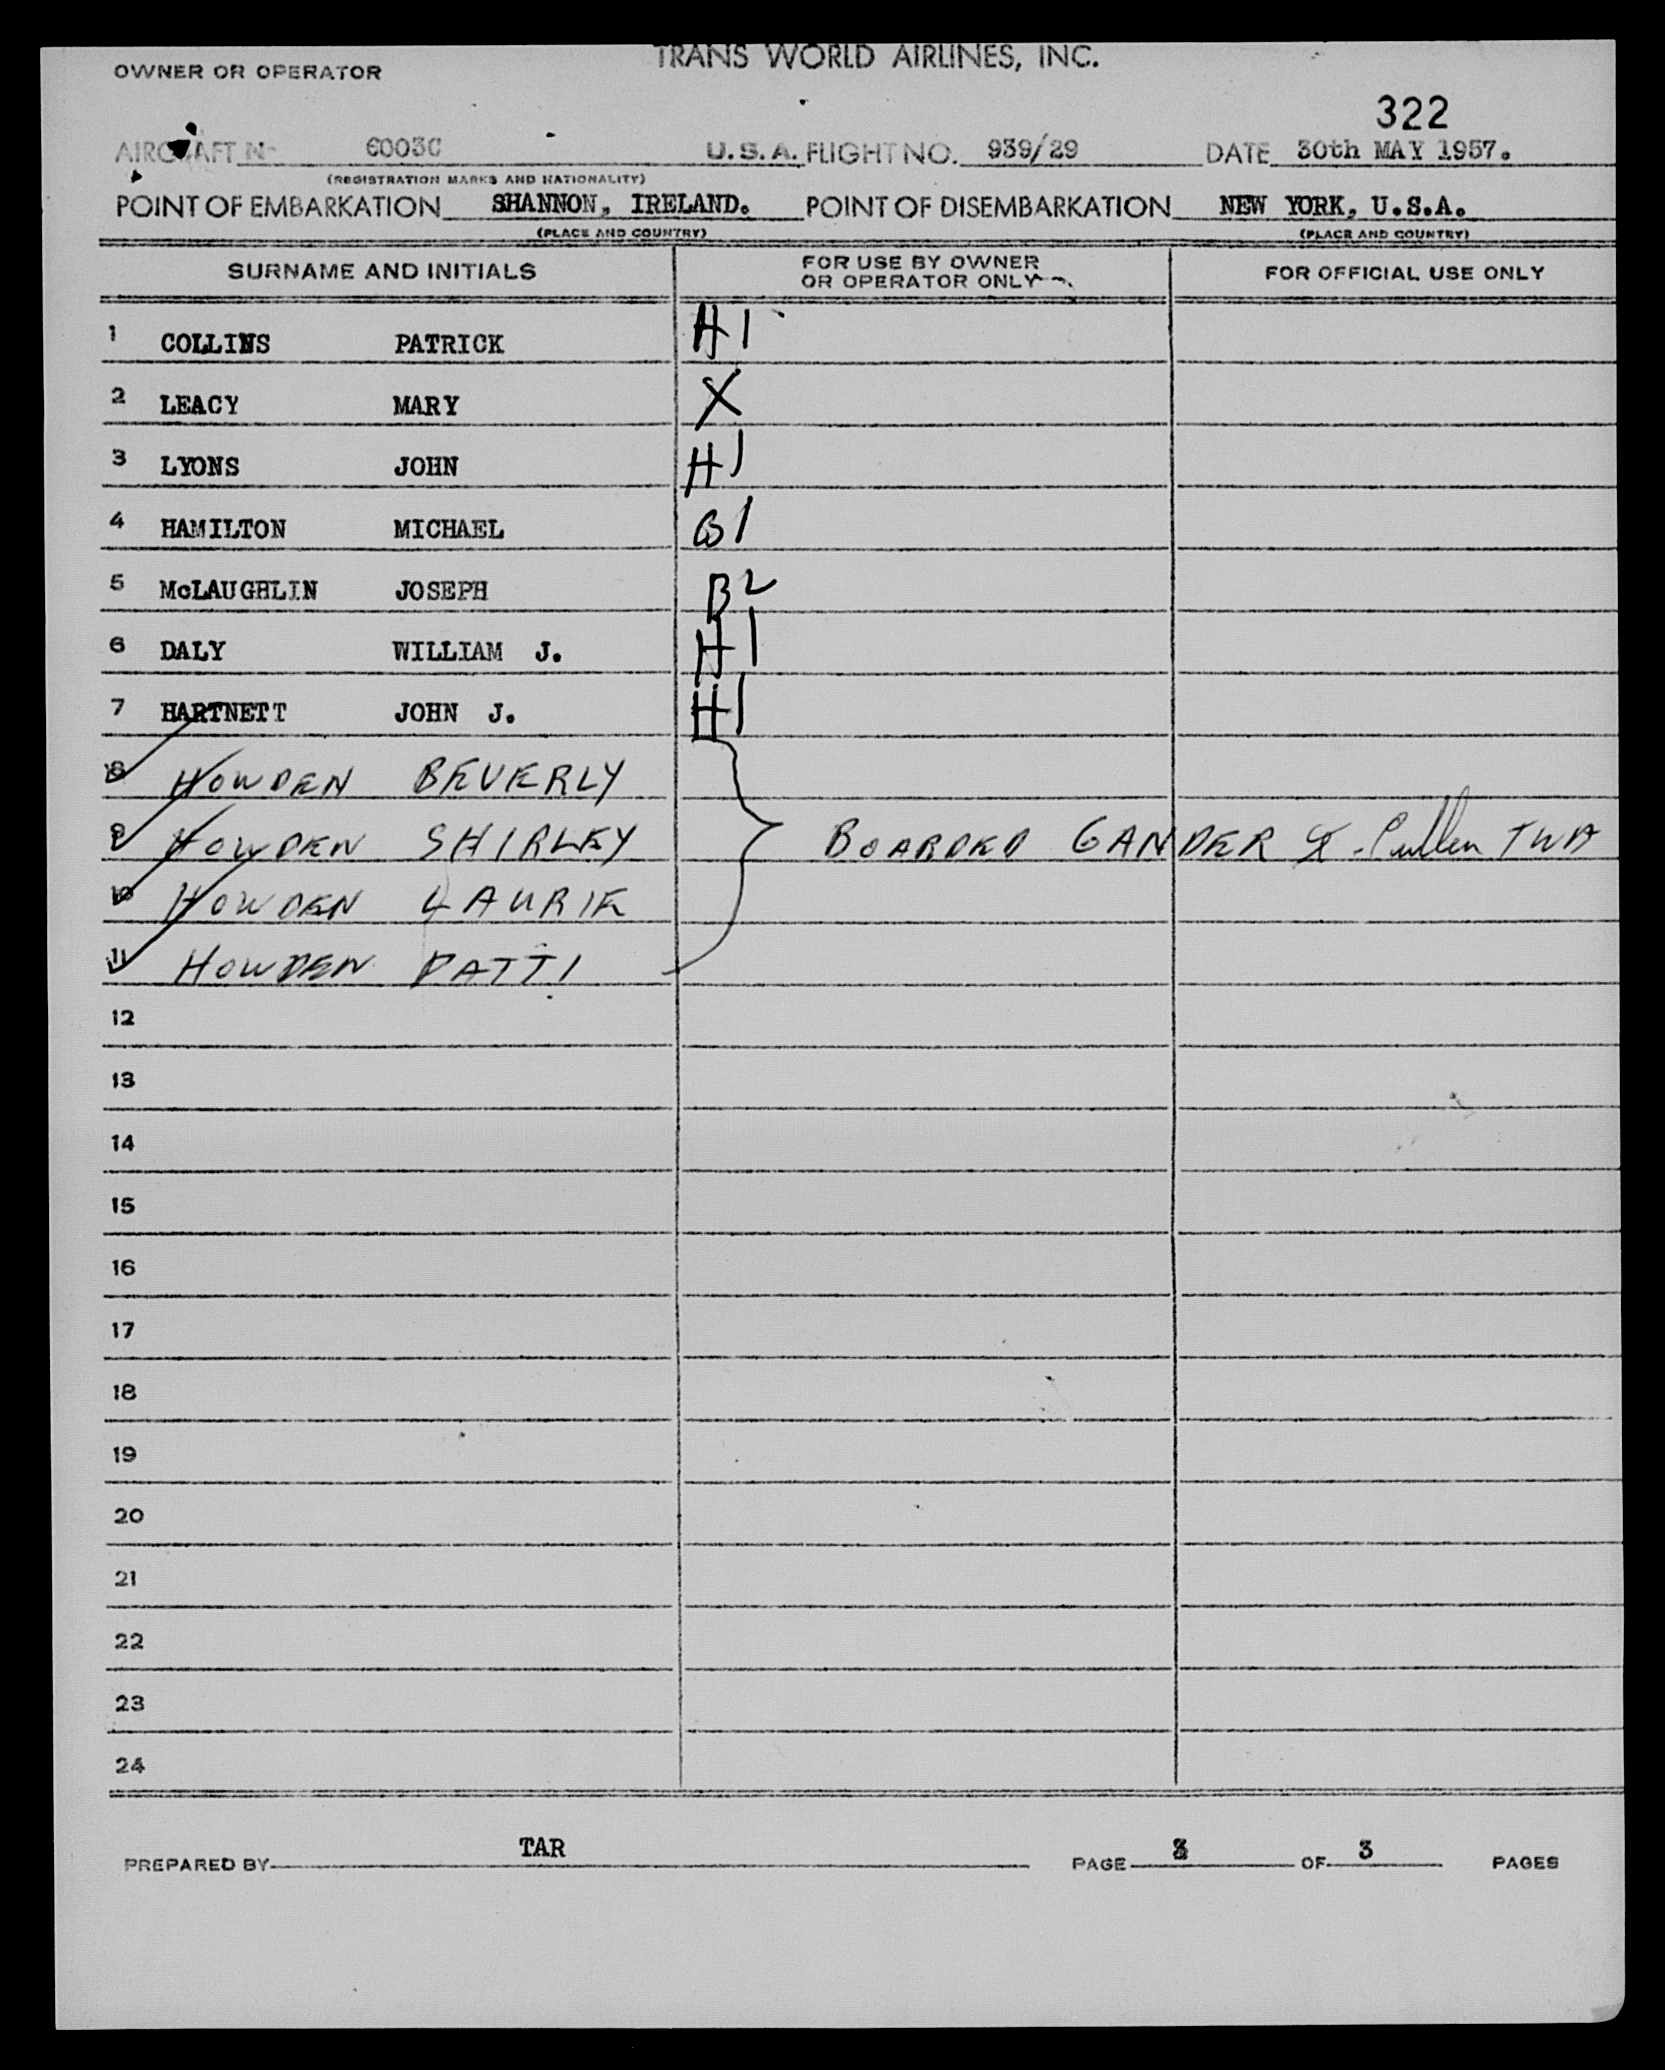 TRANS WORLD AIRLINES, INC.
OWNER OR OPERATOR
322
AIRCRAFT No 6003C U.S.A. FLIGHT NO. 939/29 DATE 30th MAY 1957.
(REGISTRATION MARKS AND NATIONALITY)
POINT OF EMBARKATION SHANNON, IRELAND. POINT OF DISEMBARKATION NEW YORK, U.S.A.
(PLACE AND COUNTRY) (PLACE AND COUNTRY)
SURNAME AND INITIALS FOR USE BY OWNER OR OPERATOR ONLY FOR OFFICIAL USE ONLY
1 COLLINS PATRICK H 1
2 LEACY MARY X
3 LYONS JOHN H 1
4 HAMILTON MICHAEL B 1
5 McLAUGHLIN JOSEPH B 2
6 DALY WILLIAM J. H 1
7 HARTNETT JOHN J. H 1
8 HOWDEN BEVERLY
9 HOWDEN SHIRLEY BOARDED GANDER Cullen TWA
10 HOWDEN LAURIE
11 HOWDEN PATTI
12
13
14
15
16
17
18
19
20
21
22
23
24
PREPARED BY TAR PAGE 3 OF 3 PAGES